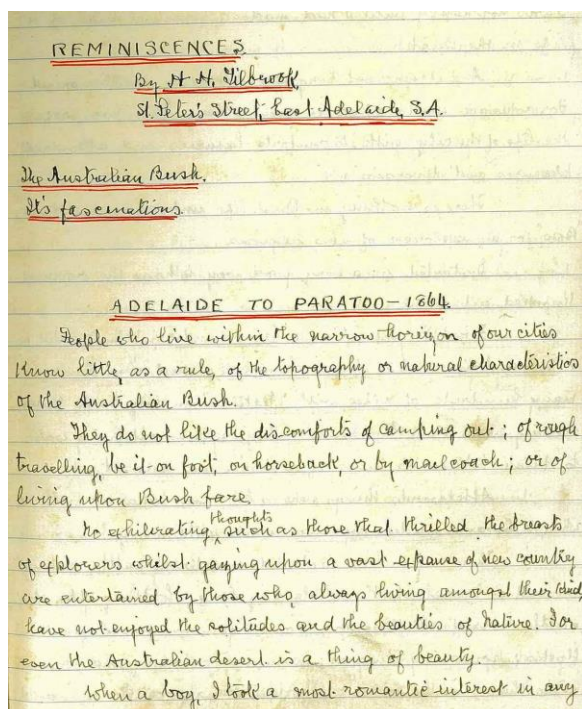 REMINISCENCES.
By H. H. Tilbrook,
St. Peter's Street, East Adelaide, S.A.
The Australian Bush.
It's fascinations.
ADELAIDE TO PARATOO — 1864.
People who live within the narrow horizon of our cities
know little, as a rule, of the topography or natural characteristics
of the Australian Bush.
They do not like the discomforts of camping out; of rough
travelling, be it on foot, on horseback, or by mail coach; or of
living upon Bush fare.
No exhilerating thoughts such as those that thrilled the breasts
of explorers whilst gazing upon a vast expanse of new country
are entertained by those who, always living amongst their kind,
have not enjoyed the solitudes and the beauties of Nature. For
even the Australian desert is a thing of beauty.
When a boy, I took a most romantic interest in any